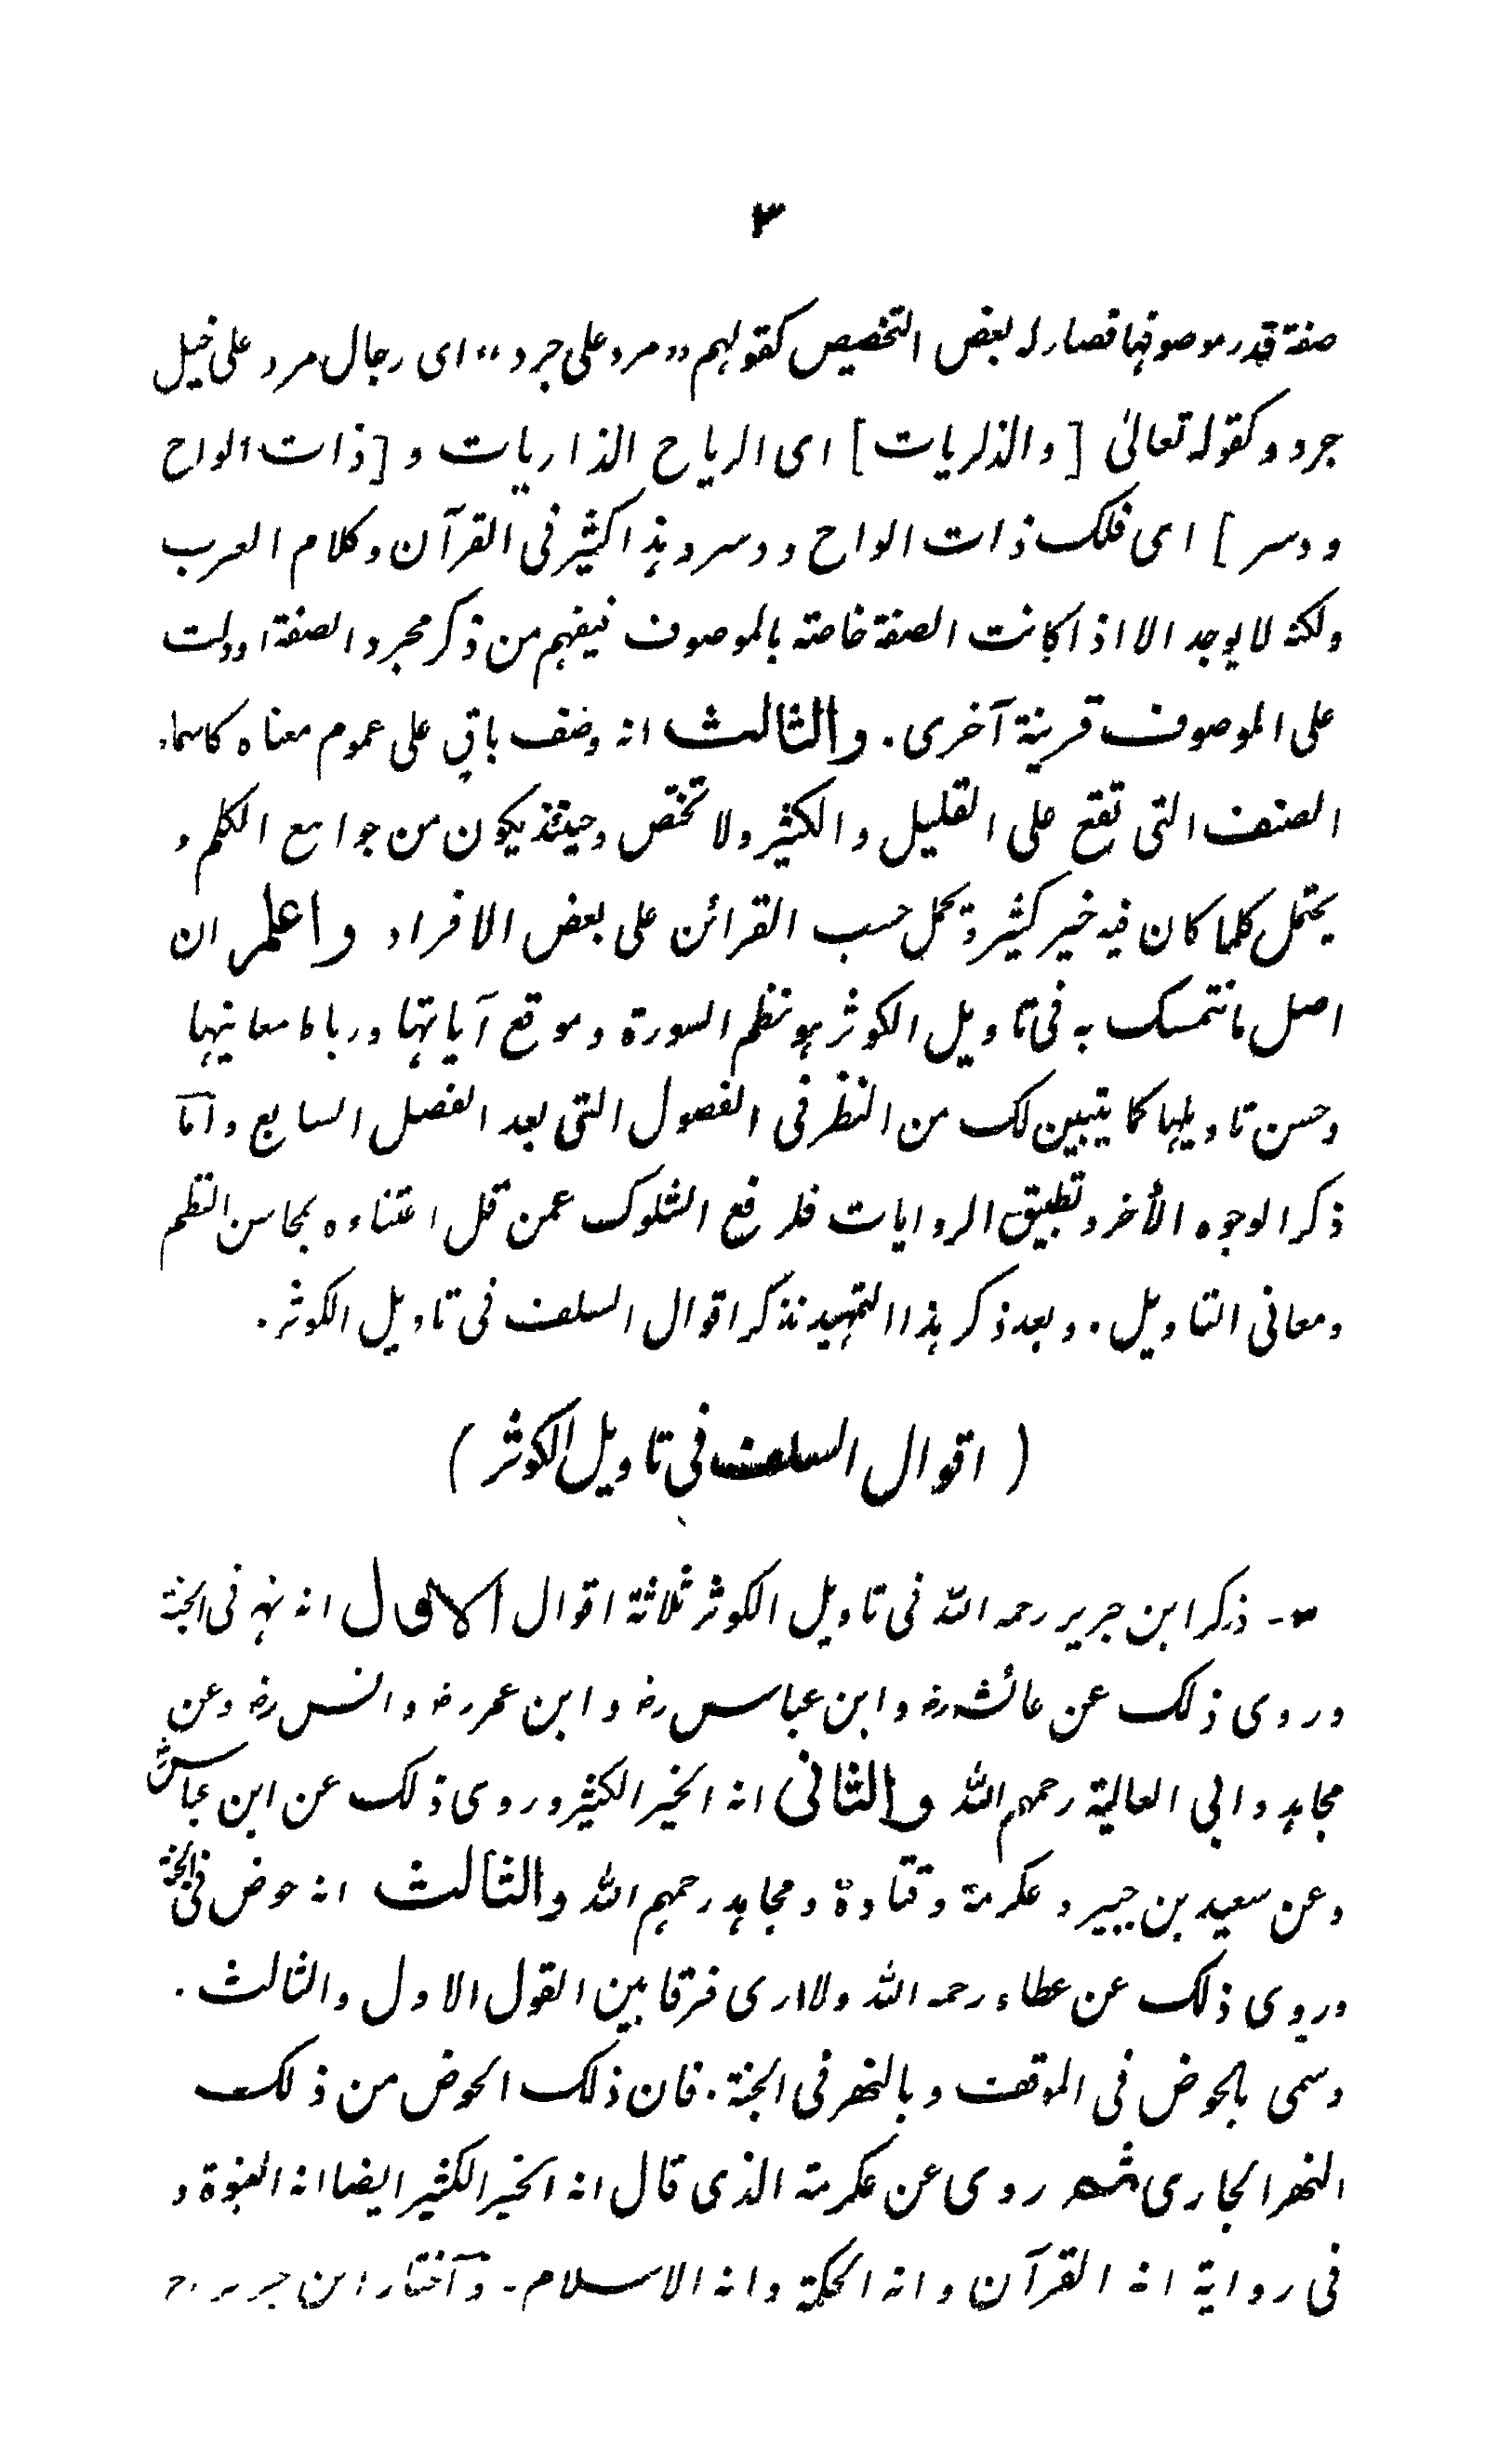 ٣
صفة قدر موصوفها فصار له بعض التخصيص كقولهم „ مرد على جرد “ اى رجال مرد على خيل
جرد وكقوله تعالىٰ [ والذٰريات ] اى الرياح الذاريات و [ ذات الواح
ودسر ] اى فلك ذات الواح ودسر وهذا كثير فى القرآن وكلام العرب
ولكنه لا يوجد الا اذا كانت الصفة خاصة بالموصوف فيفهم من ذكر مجرد الصفة او دلت
على الموصوف قرينة آخرى. والثالث انه وصف باقٍ على عموم معناه كاسماء
الصنف التى تقع على القليل والكثير ولا تختص وحينئذ يكون من جوامع الكلم و
يحتمل كلما كان فيه خير كثير ويحمل حسب القرائن على بعض الافراد واعلم ان
اصل ما نتمسك به فى تاويل الكوثر هو نظم السورة وموقع آياتها ورباط معانيها
وحسن تاويلها كما يتبين لك من النظر فى الفصول التى بعد الفصل السابع واَما
ذكر الوجوه الأخر وتطبيق الروايات فلرفع الشكوك عمن قل اعتناءه بمحاسن النظم
ومعانى التاويل. وبعد ذكر هذا التمهيد نذكر اقوال السلف فى تاويل الكوثر.
( اقوال السلف فى تاويل الكوثر )
٣- ذكر ابن جرير رحمه الله فى تاويل الكوثر ثلاثة اقوال الاول انه نهر فى الجنة
وروى ذلك عن عائشة رض وابن عباس رض وابن عمر رض وانس رض وعن
مجاهد وابى العالية رحمهم الله والثانى انه الخير الكثير وروى ذلك عن ابن عباس رض
وعن سعيد بن جبير وعكرمة وقتادة ومجاهد رحمهم الله والثالث انه حوض فى الجنة
وروى ذلك عن عطاء رحمه الله ولا ارى فرقا بين القول الاول والثالث.
وسمى بالحوض فى الموقف وبالنهر فى الجنة. فان ذلك الحوض من ذلك
النهر الجارى ثم روى عن عكرمة الذى قال انه الخير الكثير ايضا انه النبوة و
فى رواية انه القرآن وانه الحكمة وانه الاسلام - واَختار ابن جرير رح